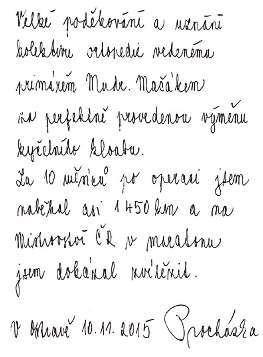 Velké poděkování a uznání
kolektivu ortopedie vedenému
primářem Mudr. Mačákem
za perfektně provedenou výměnu
kyčelního kloubu.
Za 10 měsíců po operaci jsem
naběhal asi 1450 km a na
Mistrovství ČR v maratonu
jsem dokázal zvítězit.
V Ostravě 10.11.2015 Procházka